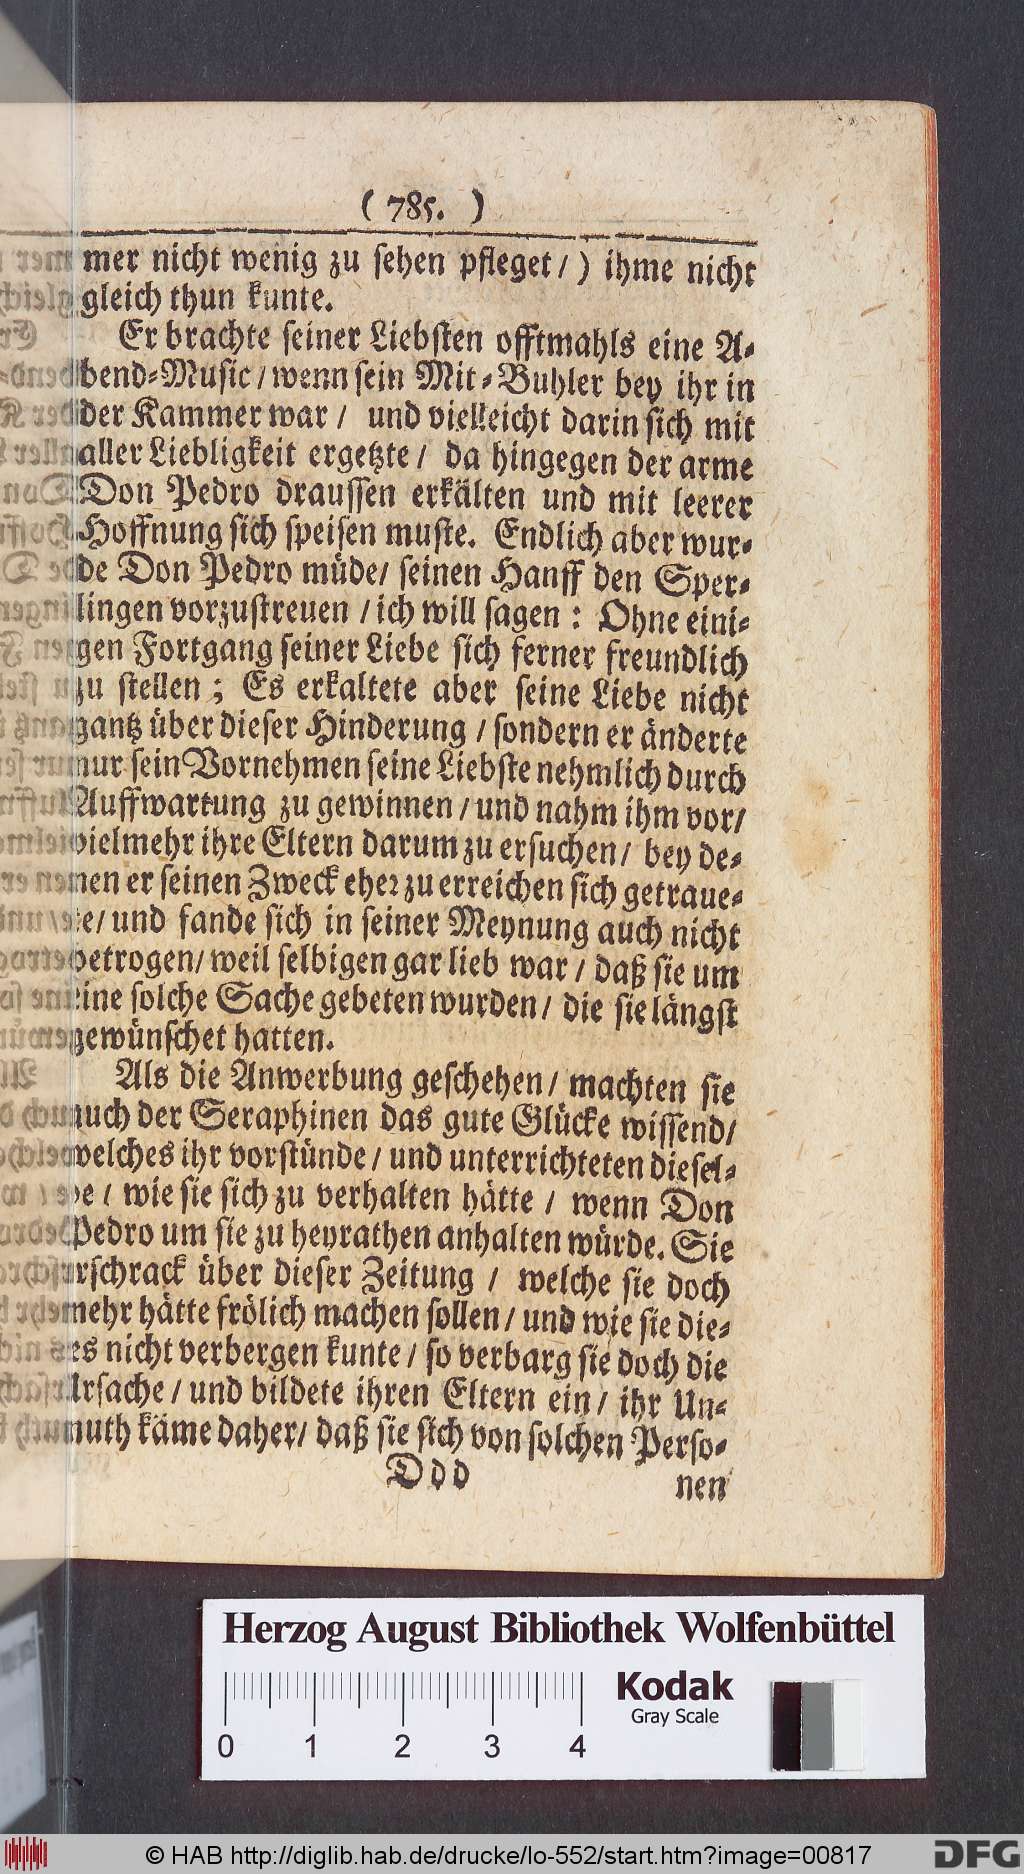 ( 785. )
mer nicht wenig zu sehen pfleget / ) ihme nicht
gleich thun kunte.
Er brachte seiner Liebsten offtmahls eine A-
bend-Music / wenn sein Mit-Buhler bey ihr in
der Kammer war / und vielleicht darin sich mit
aller Liebligkeit ergetzte / da hingegen der arme
Don Pedro draussen erkälten und mit leerer
Hoffnung sich speisen muste. Endlich aber wur-
de Don Pedro müde / seinen Hanff den Sper-
lingen vorzustreuen / ich will sagen : Ohne eini-
gen Fortgang seiner Liebe sich ferner freundlich
zu stellen ; Es erkaltete aber seine Liebe nicht
gantz über dieser Hinderung / sondern er änderte
nur sein Vornehmen seine Liebste nehmlich durch
Auffwartung zu gewinnen / und nahm ihm vor /
vielmehr ihre Eltern darum zu ersuchen / bey de-
nen er seinen Zweck eher zu erreichen sich getraue-
te / und fande sich in seiner Meynung auch nicht
betrogen / weil selbigen gar lieb war / daß sie um
eine solche Sache gebeten wurden / die sie längst
gewünschet hatten.
Als die Anwerbung geschehen / machten sie
auch der Seraphinen das gute Glücke wissend /
welches ihr vorstünde / und unterrichteten diesel-
be / wie sie sich zu verhalten hätte / wenn Don
Pedro um sie zu heyrathen anhalten würde. Sie
erschrack über dieser Zeitung / welche sie doch
mehr hätte frölich machen sollen / und wie sie die-
ses nicht verbergen kunte / so verbarg sie doch die
Ursache / und bildete ihren Eltern ein / ihr Un-
muth käme daher / daß sie sich von solchen Perso-
Ddd
nen
Herzog August Bibliothek Wolfenbüttel
Kodak
Gray Scale
0 1 2 3 4
© HAB http://diglib.hab.de/drucke/lo-552/start.htm?image=00817
DFG